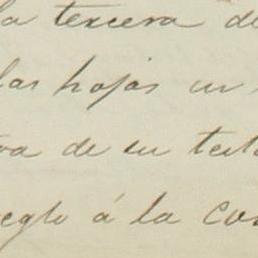 la tercera de
las hojas en
va de su test
reglo á la con